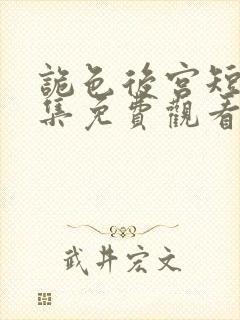 詭色後宮短
集免費觀看
武井宏文